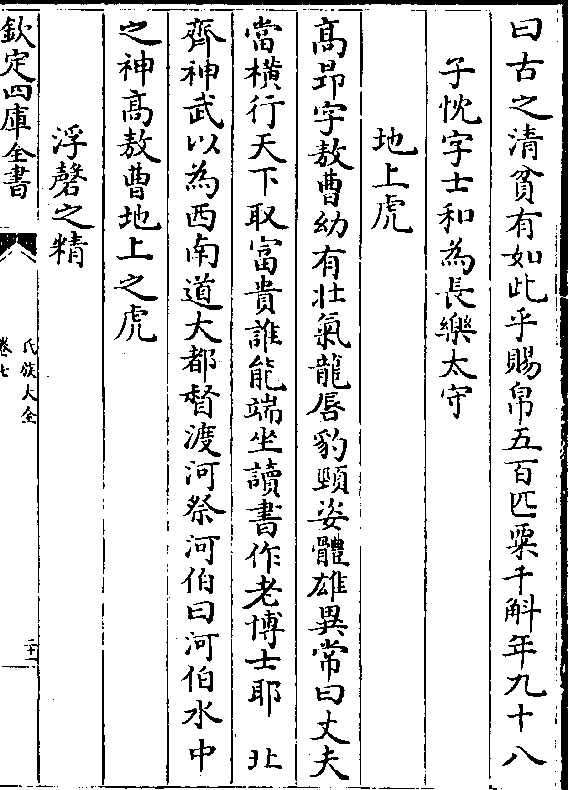 曰古之清貧有如此乎賜帛五百匹粟千斛年九十八
子忱字士和為長樂太守
地上虎
髙昻字敖曹幼有壯氣龍唇豹頸姿體雄異常曰丈夫
當横行天下取富貴誰能端坐讀書作老博士耶 北
齊神武以為西南道大都督渡河祭河伯曰河伯水中
之神髙敖曹地上之虎
浮磬之精
欽定四庫全書
氏族大全
卷七
二十二